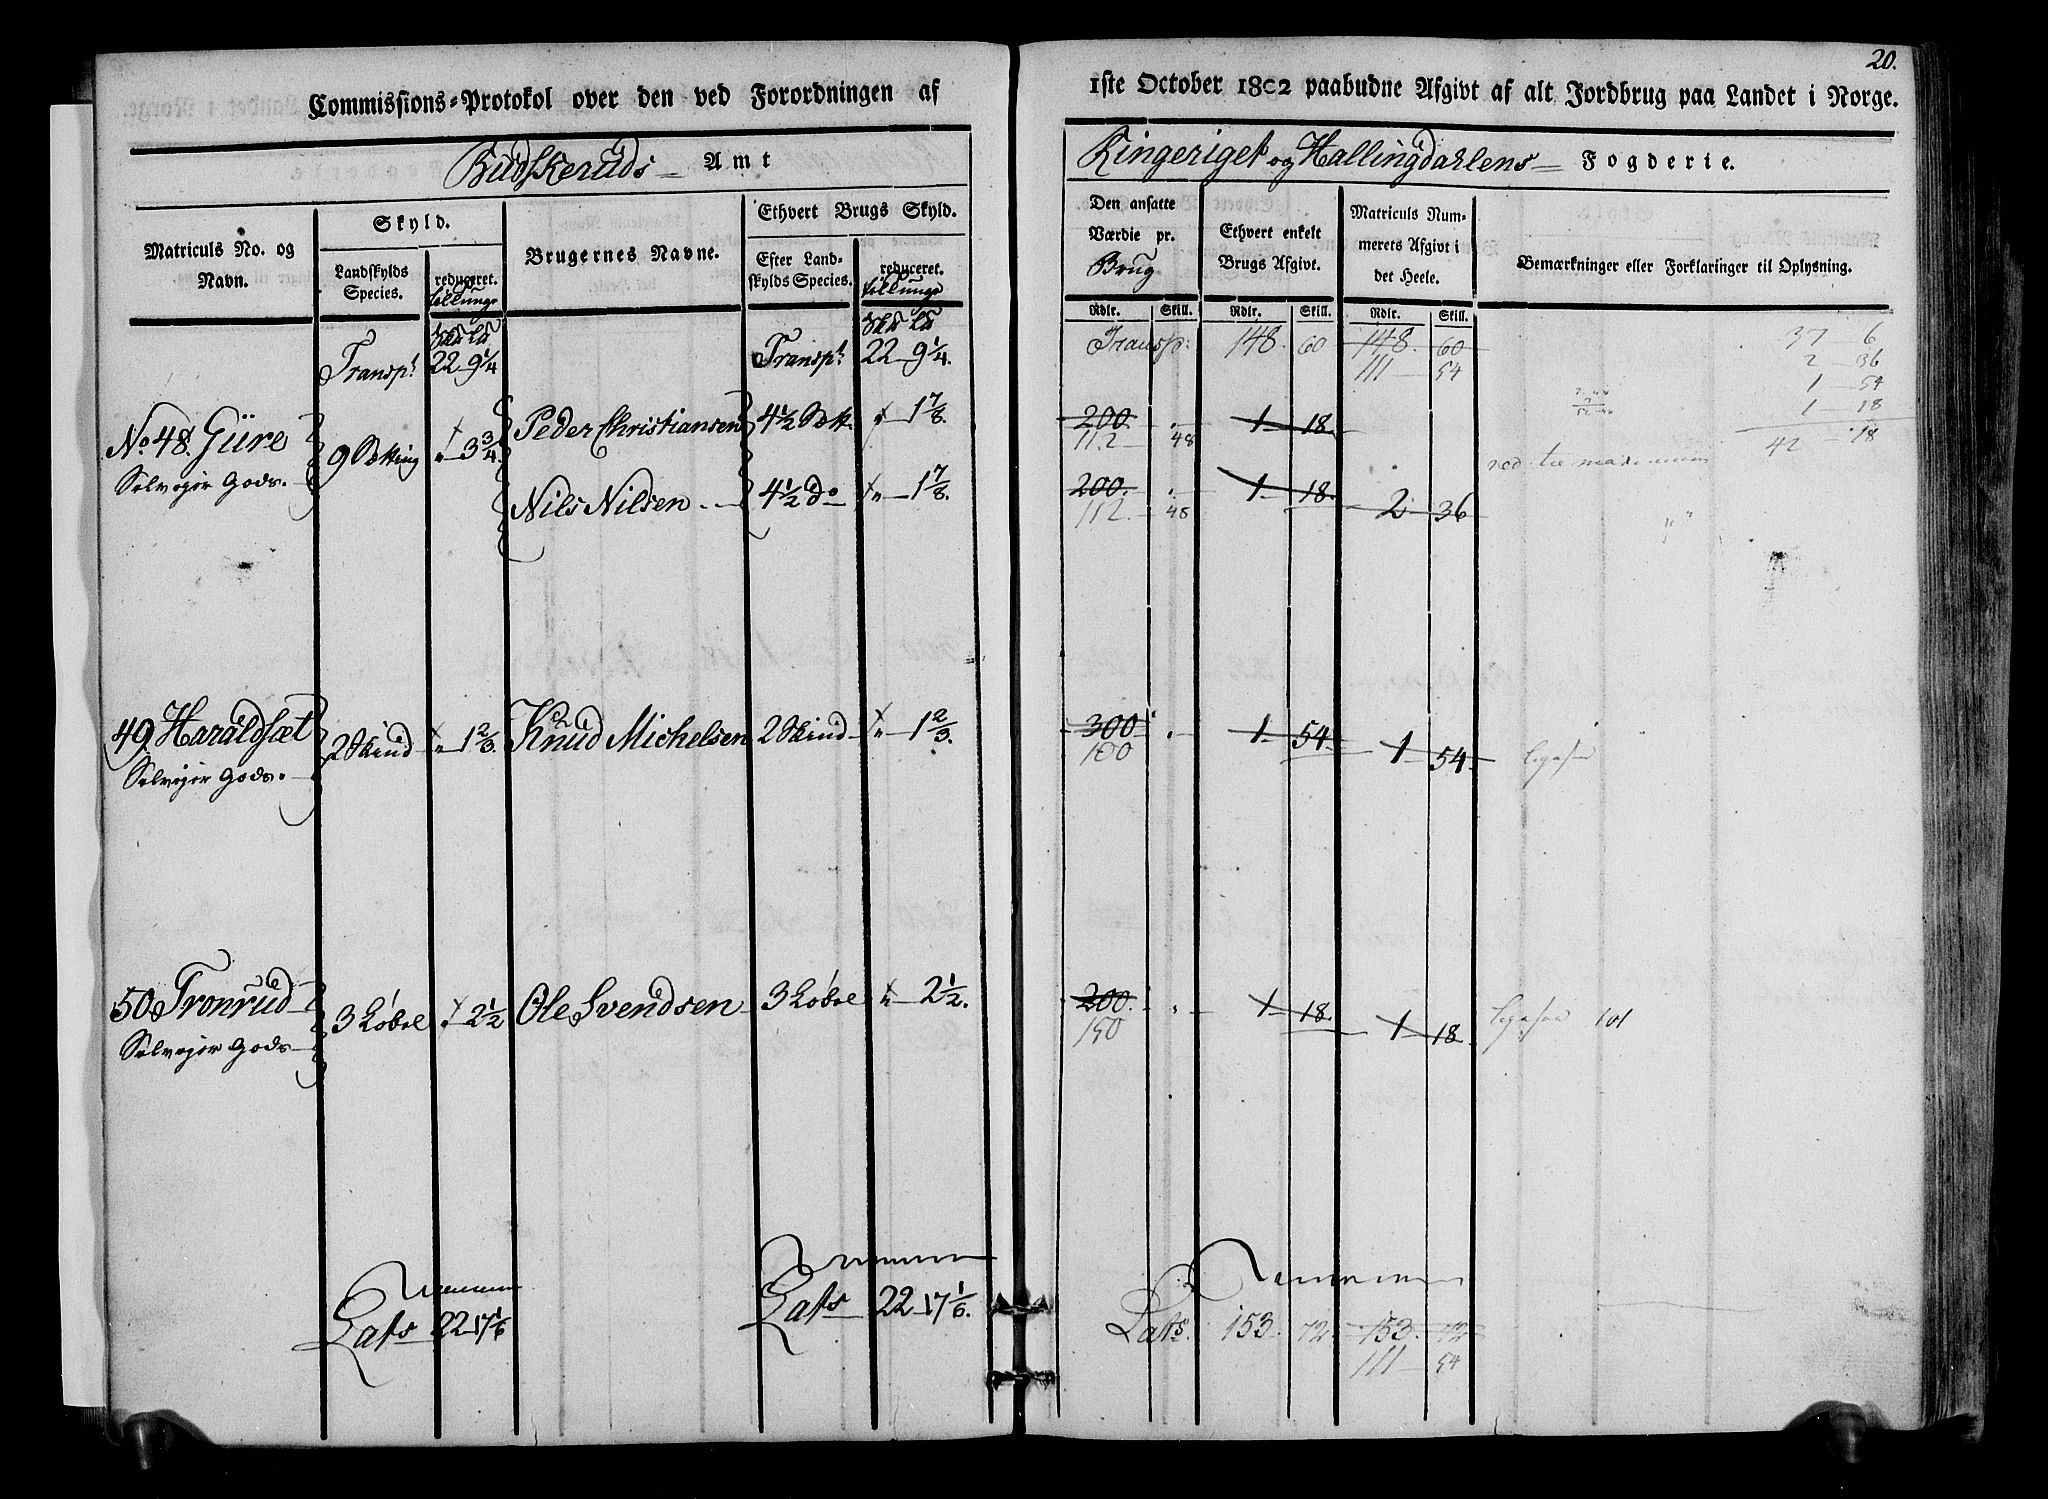 20.
Commissions-Protokol over den ved Forordningen af 1ste October 1802 paabudne Afgivt af alt Jordbrug paa Landet i Norge.
Budskeruds Amt
Ringeriget og Hallingdahlens Fogderie.
Matriculs No. og Navn.
Skyld.
Landskylds Species.
reduceret.
Brugernes Navne.
Ethvert Brugs Skyld.
Efter Landskylds Species.
reduceret.
Den ansatte Værdie pr. Brug
Ethvert enkelt Brugs Afgivt.
Matriculs Nummerets Afgivt i det Heele.
Bemærkninger eller Forklaringer til Oplysning.
Rdlr. Skill. Rdlr. Skill. Rdlr. Skill.
Transpt 22 9 1/4 Transpt 22 9 1/4. Transp: 148. 60 148. 60 37 6
111 54 2 36
1 54
1 18
42 18
No. 48. Güre 9 Setting " 3 3/4 Peder Christiansen 4 1/2 Sett. " 1 7/8. 200. 1 18.
Selveier Gods. 112. 48
Nils Nilsen 4 1/2 do " 1 7/8. 200. 1 18. 2 36
112. 48
49. Haraldsæt 2 Skind " 1 2/3. Knud Michelsen 2 Skind " 1 2/3. 300 1 54 1 54.
Selveier Gods. 100
50 Tronrud 3 Løbol " 2 1/2 Ole Svendsen 3 Løbol " 2 1/2. 200. 1 18. 1 18. 101
Selveier Gods 150
Lats 22 17 1/6 Lats 22 17 1/6. Lats. 153. 72. 153. 72
111 54